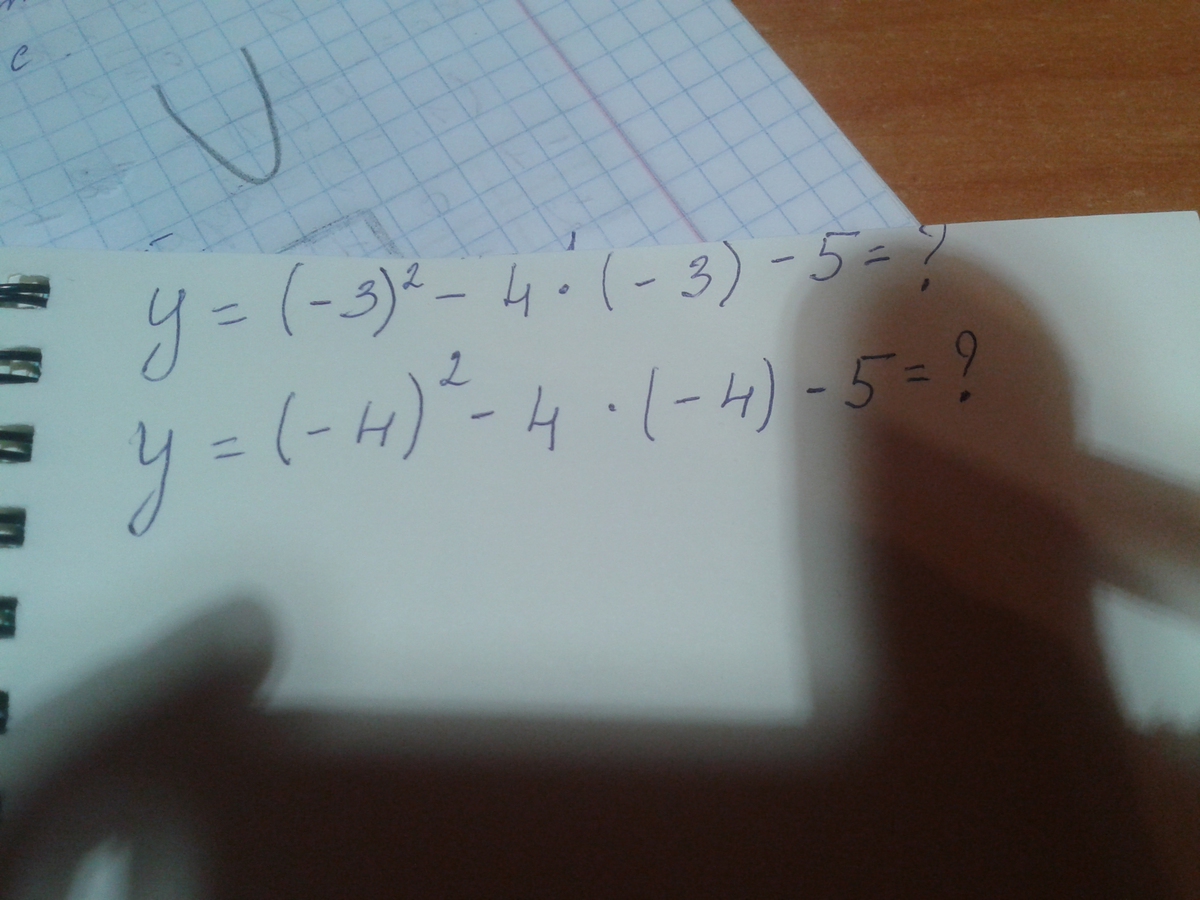 c
y = (-3)² - 4 · (-3) - 5 = ?
y = (-4)² - 4 · (-4) - 5 = ?